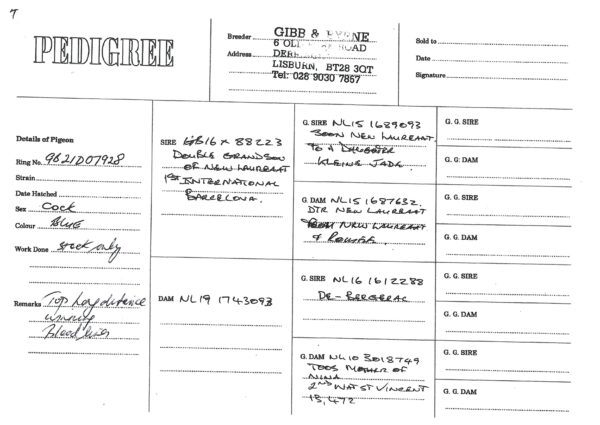 PEDIGREE
Breeder GIBB &
6
Address
LISBURN, BT28 3QT
Tel: 028 9030 7857
Sold to
Date
Signature
Details of Pigeon
Ring No. 9621D07928
Strain
Date Hatched
Sex Cock
Colour BLUE
Work Done Stock only
Remarks Top long distance
winning
Blood lines
SIRE GB16 X 88223
DOUBLE GRANDSON
OF NEW LAUREAAT
1ST INTERNATIONAL
BARCELONA.
DAM NL19 1743093
G. SIRE NL15 1689093
SOON NEW LAUREAAT.
TO A DAUGHTER
KLEINE JADE
G. DAM NL15 1687632.
DTR NEW LAUREAAT
NEW LAUREAAT
&
G. SIRE NL16 1612288
DE-BERGERAC
G. DAM NL10 3018749
TOOS MOTHER OF
NINA
2ND NAT ST VINCENT
13,472
G. G. SIRE
G. G. DAM
G. G. SIRE
G. G. DAM
G. G. SIRE
G. G. DAM
G. G. SIRE
G. G. DAM